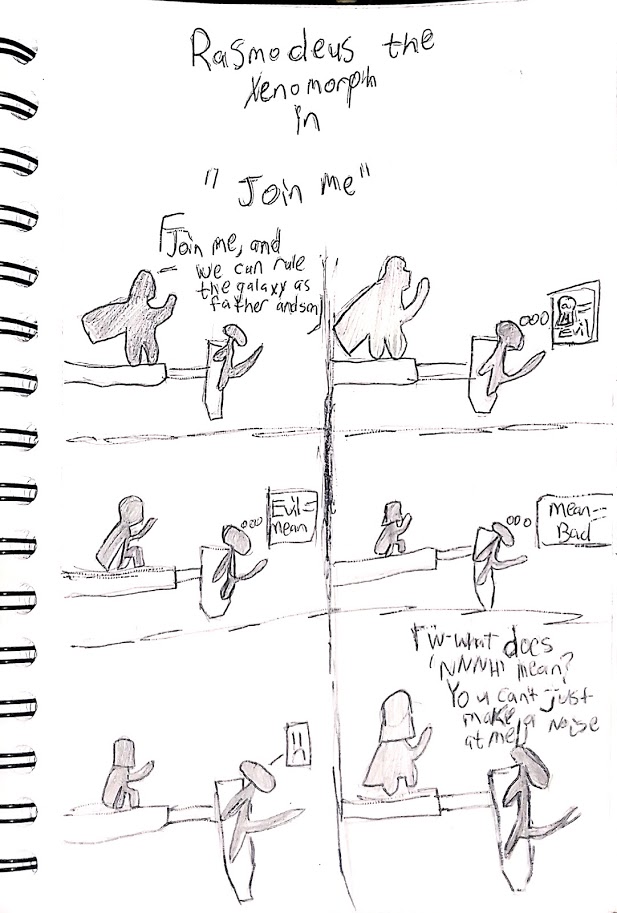 Rasmodeus the
Xenomorph
in
"Join me"
Join me, and
we can rule
the galaxy as
father and son
=
Evil
Evil=
Mean
Mean=
Bad
W-what does
'NNNH' mean?
You can't just
make a noise
at me!